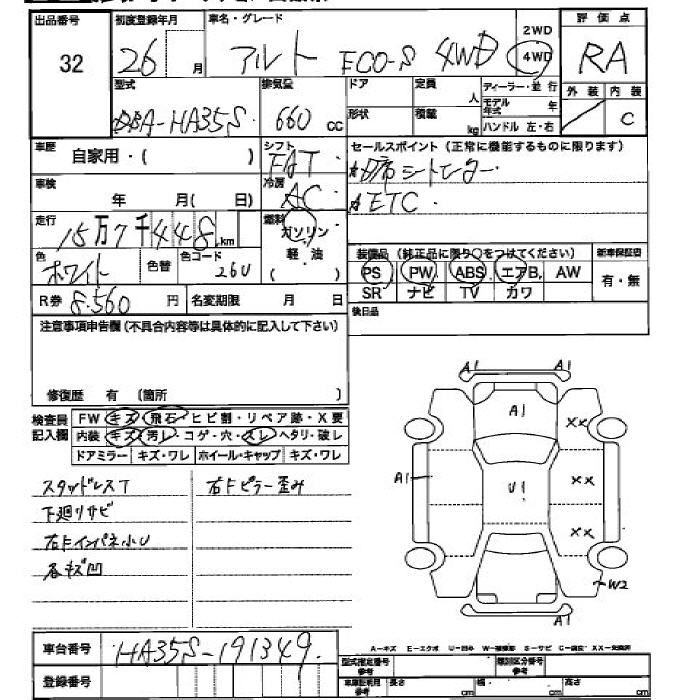 出品番号
32
初度登録年月
26 月
車名・グレード
アルト ECO-S 4WD
2WD
4WD
評価点
RA
外装 内装
C
型式
DBA-HA35S
排気量
660 cc
ドア
形状
定員
人
積載
kg
ディーラー・並行
モデル年式 年
ハンドル 左・右
車歴
自家用・( )
シフト
FAT
セールスポイント (正常に機能するものに限ります)
席シートヒーター
ETC
車検
年 月( 日)
冷房
AC
走行
15万7千448km
燃料
ガソリン
軽・油
色
ホワイト
色替
色コード
26U
装備品 (純正品に限り○をつけてください)
PS PW ABS エアB. AW
SR ナビ TV カワ
新車保証書
有・無
R券 8.560 円
名変期限 月 日
後日品
注意事項申告欄(不具合内容等は具体的に記入して下さい)
修復歴 有 (箇所 )
検査員記入欄
FW キズ・飛石・ヒビ割・リペア跡・X要
内装 キズ・汚レ・コゲ・穴・スレ・ヘタリ・破レ
ドアミラー キズ・ワレ ホイール・キャップ キズ・ワレ
スタッドレスT
下廻りサビ
右Fインパネ小U
各キズ凹
右Fピラー歪み
A1
A1
A1
XX
A1
U1
XX
XX
W2
A1
車台番号
HA35S-191349.
登録番号
A-キズ E-エクボ U-凹み W-補修跡 S-サビ C-腐食 XX-交換済
型式指定番号
参考
類別区分番号
参考
車庫証明用
参考
長さ cm
幅 cm
高さ cm